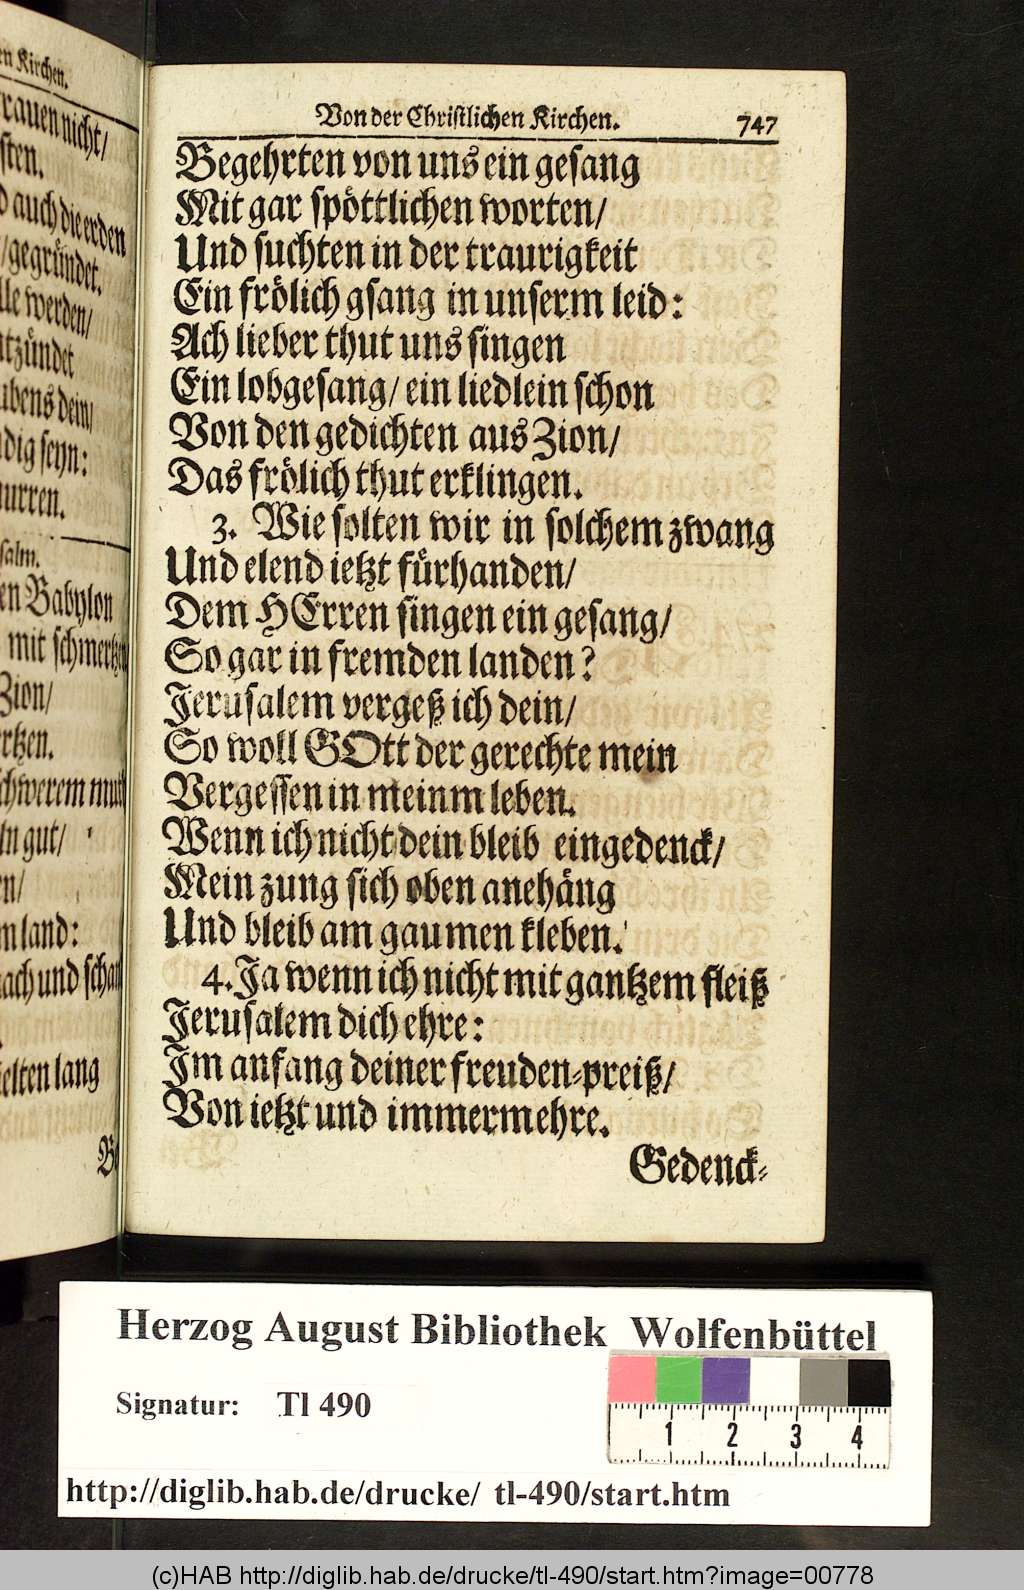 en Kirchen.
rauen nicht/
sten.
d auch die erden
/gegründet.
lle werden/
ntzündet
ubens dein/
dig seyn:
nurren.
salm.
en Babylon
mit schmertzen
Zion/
rtzen.
schwerem mut
ln gut/
en/
m land:
ach und schan
ielten lang
Be
Von der Christlichen Kirchen. 747
Begehrten von uns ein gesang
Mit gar spöttlichen worten/
Und suchten in der traurigkeit
Ein frölich gsang in unserm leid:
Ach lieber thut uns singen
Ein lobgesang/ ein liedlein schon
Von den gedichten aus Zion/
Das frölich thut erklingen.
3. Wie solten wir in solchem zwang
Und elend ietzt fürhanden/
Dem HErren singen ein gesang/
So gar in fremden landen?
Jerusalem vergeß ich dein/
So woll GOtt der gerechte mein
Vergessen in meinm leben.
Wenn ich nicht dein bleib eingedenck/
Mein zung sich oben anehäng
Und bleib am gaumen kleben.
4. Ja wenn ich nicht mit gantzem fleiß
Jerusalem dich ehre:
Im anfang deiner freuden-preiß/
Von ietzt und immermehre.
Gedenck-
Herzog August Bibliothek Wolfenbüttel
Signatur: Tl 490
1 2 3 4
http://diglib.hab.de/drucke/ tl-490/start.htm
(c)HAB http://diglib.hab.de/drucke/tl-490/start.htm?image=00778